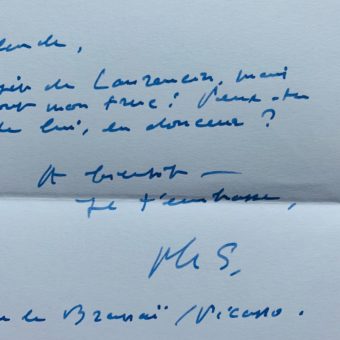 de Laurencin, mais
mon truc ! Peux-tu
lui, en douceur ?
A bientôt –
Je t'embrasse,
Ph S.
de Brassaï / Picasso.